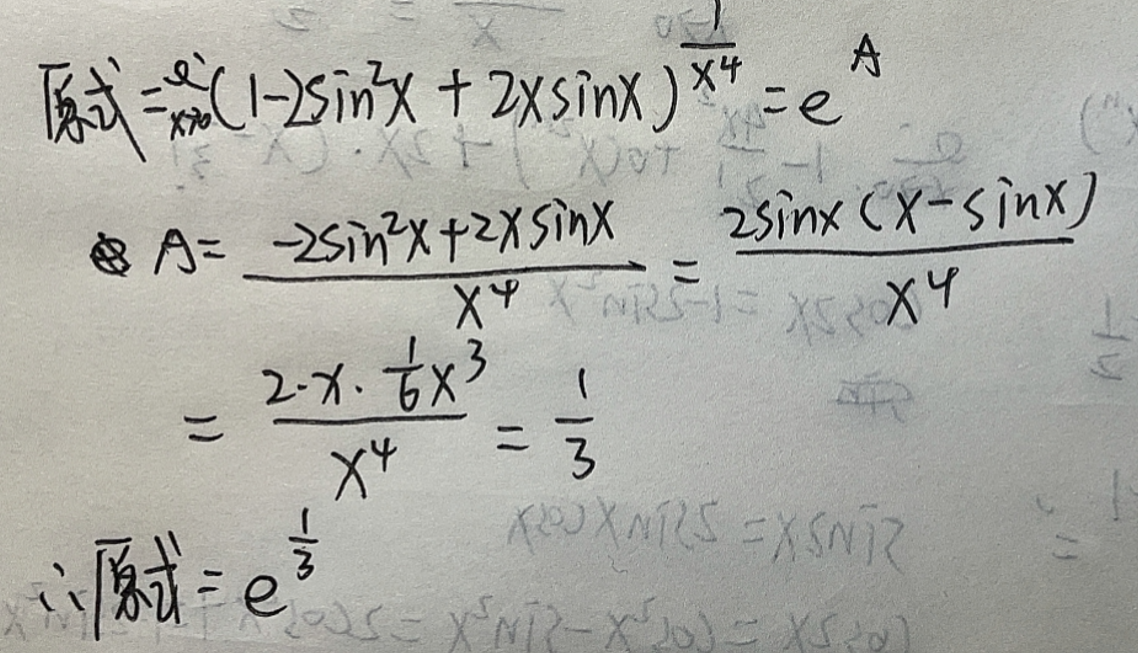 原式=lim x→0 (1-2sin²x + 2xsinx)^(1/x⁴) = e^A
A = (-2sin²x+2xsinx)/x⁴ = 2sinx(x-sinx)/x⁴
= (2·x·(1/6)x³)/x⁴ = 1/3
∴原式 = e^(1/3)